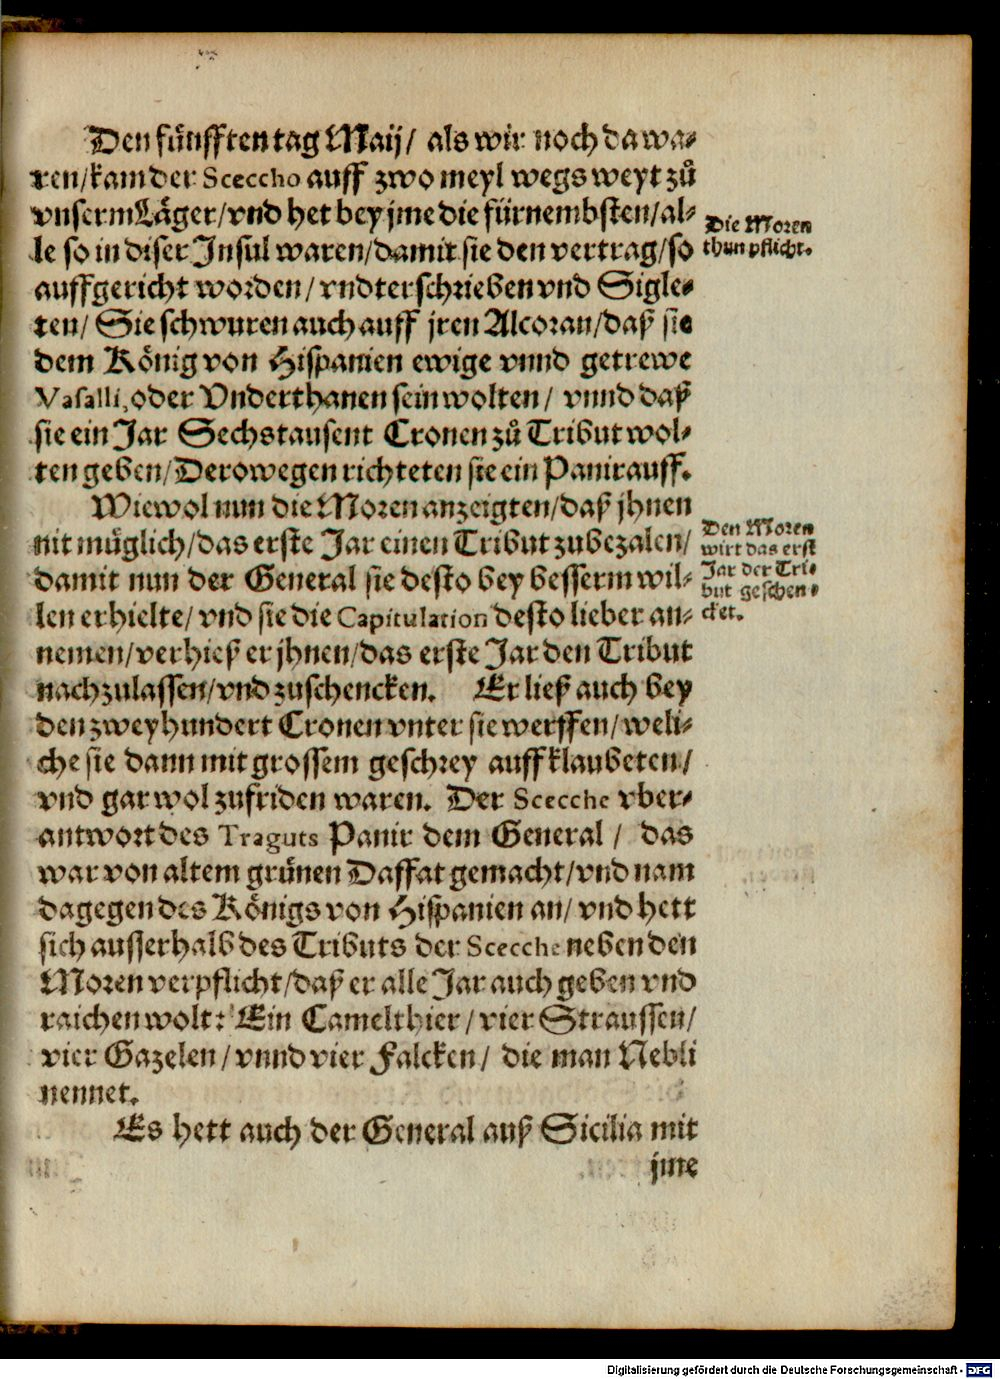 Den fuͤnfften tag Maij/ als wir noch da wa-
ren/kam der Sceccho auff zwo meyl wegs weyt zuͦ
vnserm Laͤger/vnd het bey jme die fuͤrnembsten/al-
le so in diser Insul waren/damit sie den vertrag/so
auffgericht worden/vndterschrieben vnd Sigle-
ten/ Sie schwuren auch auff jren Alcoran/daß sie
dem Koͤnig von Hispanien ewige vnnd getrewe
Vasalli, oder Vnderthanen sein wolten/ vnnd daß
sie ein Jar Sechstausent Cronen zuͦ Tribut wol-
ten geben/Derowegen richteten sie ein Panir auff.
Die Moren
thun pflicht.
Wiewol nun die Moren anzeigten/daß jhnen
nit muͤglich/das erste Jar einen Tribut zubezalen/
damit nun der General sie desto bey besserm wil-
len erhielte/ vnd sie die Capitulation desto lieber an-
nemen/verhieß er jhnen/das erste Jar den Tribut
nachzulassen/vnd zuschencken. Er ließ auch bey
den zweyhundert Cronen vnter sie werffen/weli-
che sie dann mit grossem geschrey auffklaubeten/
vnd gar wol zufriden waren. Der Scecche vber-
antwort des Traguts Panir dem General/ das
war von altem gruͤnen Daffat gemacht/vnd nam
dagegen des Koͤnigs von Hispanien an/ vnd hett
sich ausserhalb des Tributs der Scecche neben den
Moren verpflicht/daß er alle Jar auch geben vnd
raichen wolt: Ein Camelthier/ vier Straussen/
vier Gazelen/vnnd vier Falcken/ die man Nebli
nennet.
Den Moren
wirt das erst
Jar der Tri-
but geschen-
cket.
Es hett auch der General auß Sicilia mit
jme
Digitalisierung gefördert durch die Deutsche Forschungsgemeinschaft - DFG